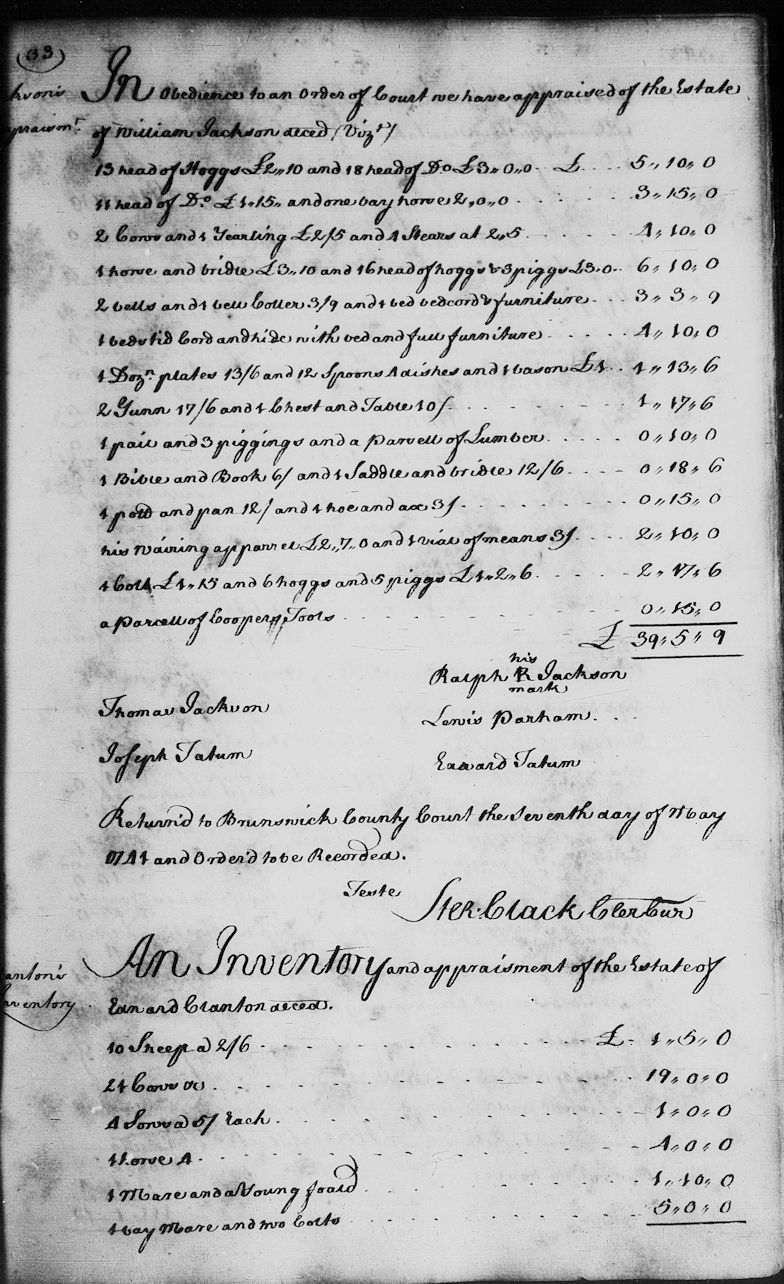 33
In Obedience to an Order of Court we have appraised of the Estate
of William Jackson deced (Vizt)
13 head of Hoggs £2,,10 and 18 head of Do £3,,0,,0 £ 5,,10,,0
11 head of Do £1,,15,, and one bay horse 2,,0,,0 3,,15,,0
2 Cows and 1 Yearling £2/5 and 4 Stears at 2,,5 4,,10,,0
1 horse and bridle £3,,10 and 16 head of hoggs & 3 piggs £3,,0 6,,10,,0
2 bells and 1 bell Coller 3/9 and 1 bed bedcord & furniture 3,,3,,9
1 bedstid Cord and hide with bed and full furniture 4,,10,,0
1 Dozn plates 13/6 and 12 Spoons 4 dishes and 1 bason £1 1,,13,,6
2 Gunn 17/6 and 1 Chest and Table 10/ 1,,17,,6
1 pail and 3 piggings and a Parcell of Lumber 0,,10,,0
1 Bible and Book 6/ and 1 Saddle and bridle 12/6 0,,18,,6
1 pott and pan 12/ and 1 hoe and ax 3/ 0,,15,,0
his Wairing apparrel £2,,7,,0 and 1 vial of means 3/ 2,,10,,0
1 Colt £1,,15 and 6 hoggs and 5 piggs £1,,2,,6 2,,17,,6
a Parcell of Coopers Tools 0,,15,,0
£ 39,,5,,9
his
Ralph R Jackson
mark
Thomas Jackson
Lewis Parham
Joseph Tatum
Edward Tatum
Return'd to Brunswick County Court the Seventh day of May
1741 and Order'd to be Recorded.
Teste
Ster: Clack Cler Cur
An Inventory and appraisment of the Estate of
Edward Clanton deced.
10 Sheep a 2/6 £ 1,,5,,0
21 Cows &c 19,,0,,0
4 Sows a 5/ Each 1,,0,,0
1 horse 4 4,,0,,0
1 Mare and a Young foald 1,,10,,0
1 bay Mare and two Colts 5,,0,,0